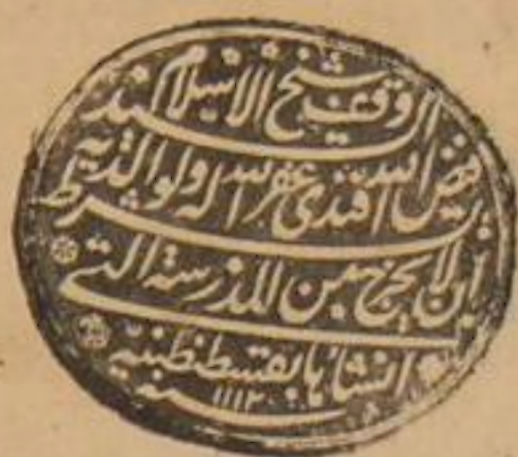 وقف شيخ الاسلام السيد
فيض الله افندى غفر الله له ولوالديه
بشرط
ان لا يخرج من المدرسة التى
انشاها بقسطنطنية
سنه ١١١٢